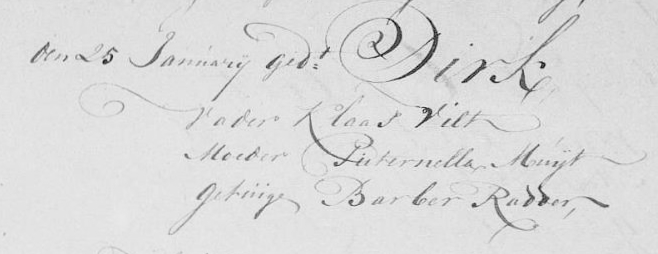 den 25 Januarÿ ged:t Dirk
Vader Klaas Vilt
Moeder Pieternella Muÿt
getuige Barber Radder,